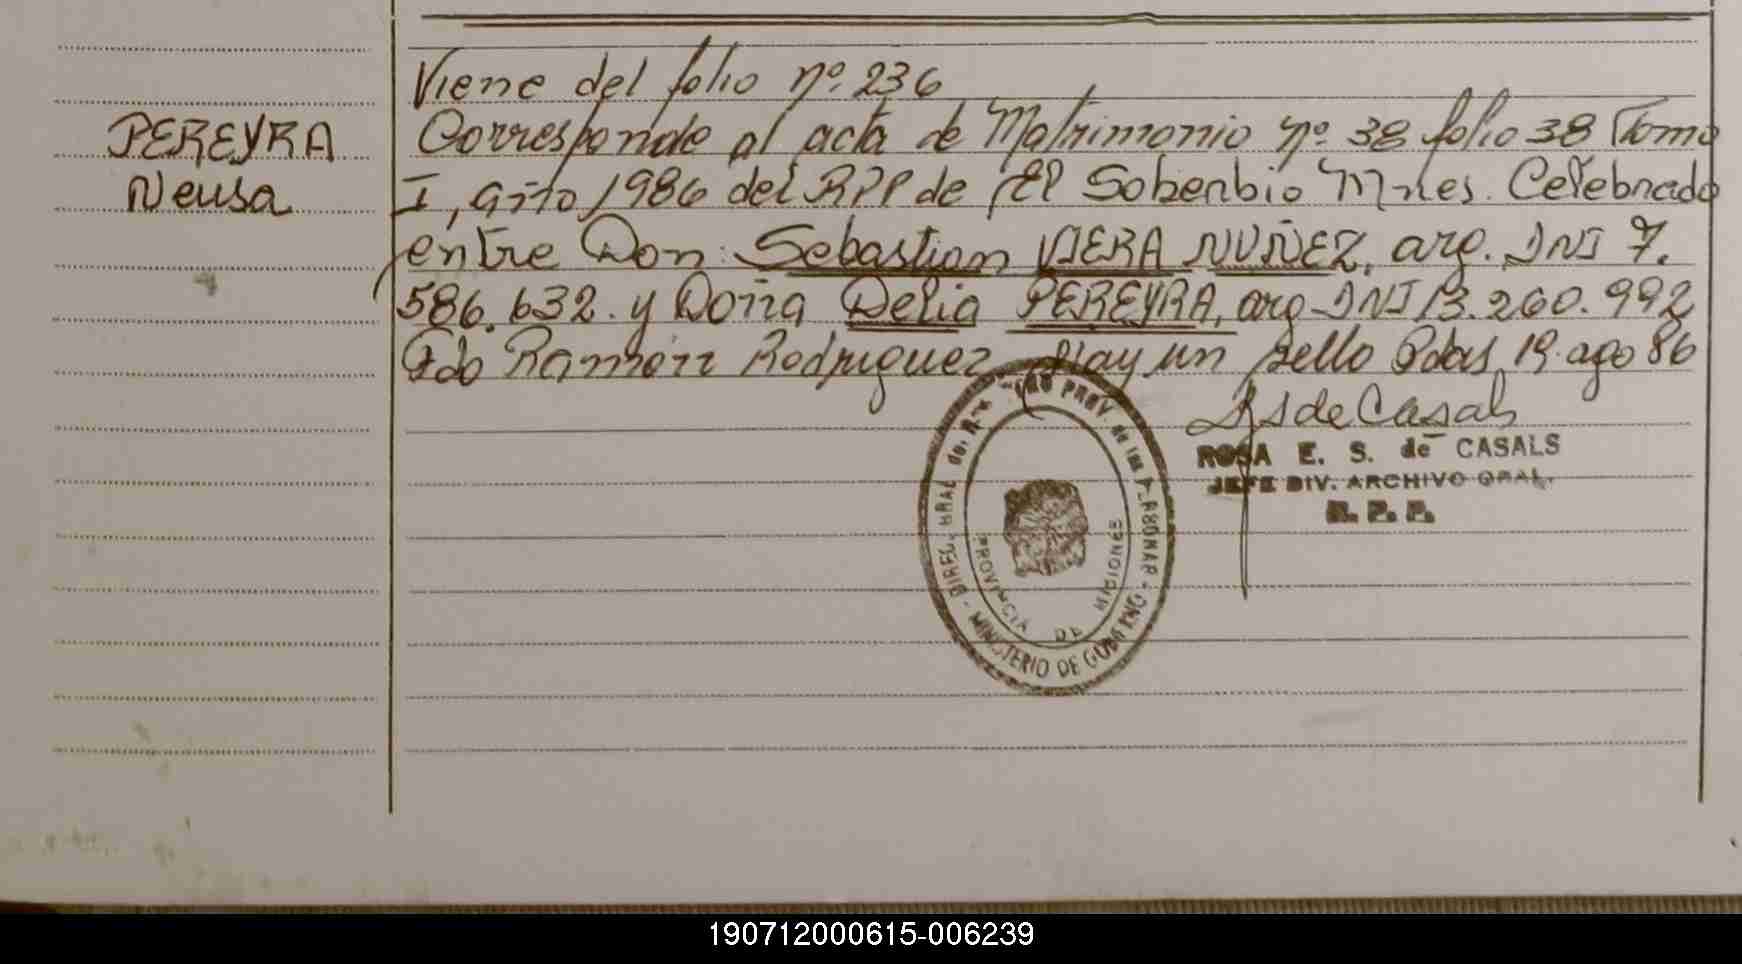 Viene del folio nº 236
PEREYRA
Neusa
Corresponde al acta de Matrimonio nº 38 folio 38 Tomo
I, año 1986 del RPP de El Soberbio Mnes. Celebrado
entre Don: Sebastian VIERA NUÑEZ, arg. DNI 7.
586.632. y Doña Delia PEREYRA, arg DNI 13.260.992
Fdo Ramón Rodriguez Hay un sello Pdas, 19 ago 86
RSdeCasals
ROSA E. S. de CASALS
JEFE DIV. ARCHIVO GRAL.
R. P. P.
DIREC. GRAL del PROV de las PERSONAS
MINISTERIO DE GOBIERNO
PROVINCIA DE MISIONES
190712000615-006239